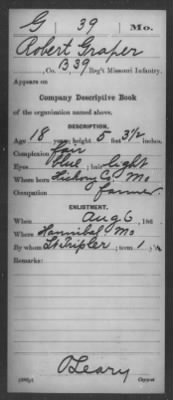 G 39 Mo.
Robert Graper
, Co. B 39 Reg't Missouri Infantry.
Appears on
Company Descriptive Book
of the organization named above.
DESCRIPTION.
Age 18 years; height 5 feet 3 1/2 inches.
Complexion Fair
Eyes Blue; hair light
Where born Hickory Co. Mo
Occupation farmer
ENLISTMENT.
When Aug 6, 186 .
Where Hannibal Mo
By whom Lt Tripler; term 1 y'rs.
Remarks:
O'Leary
Copyist.